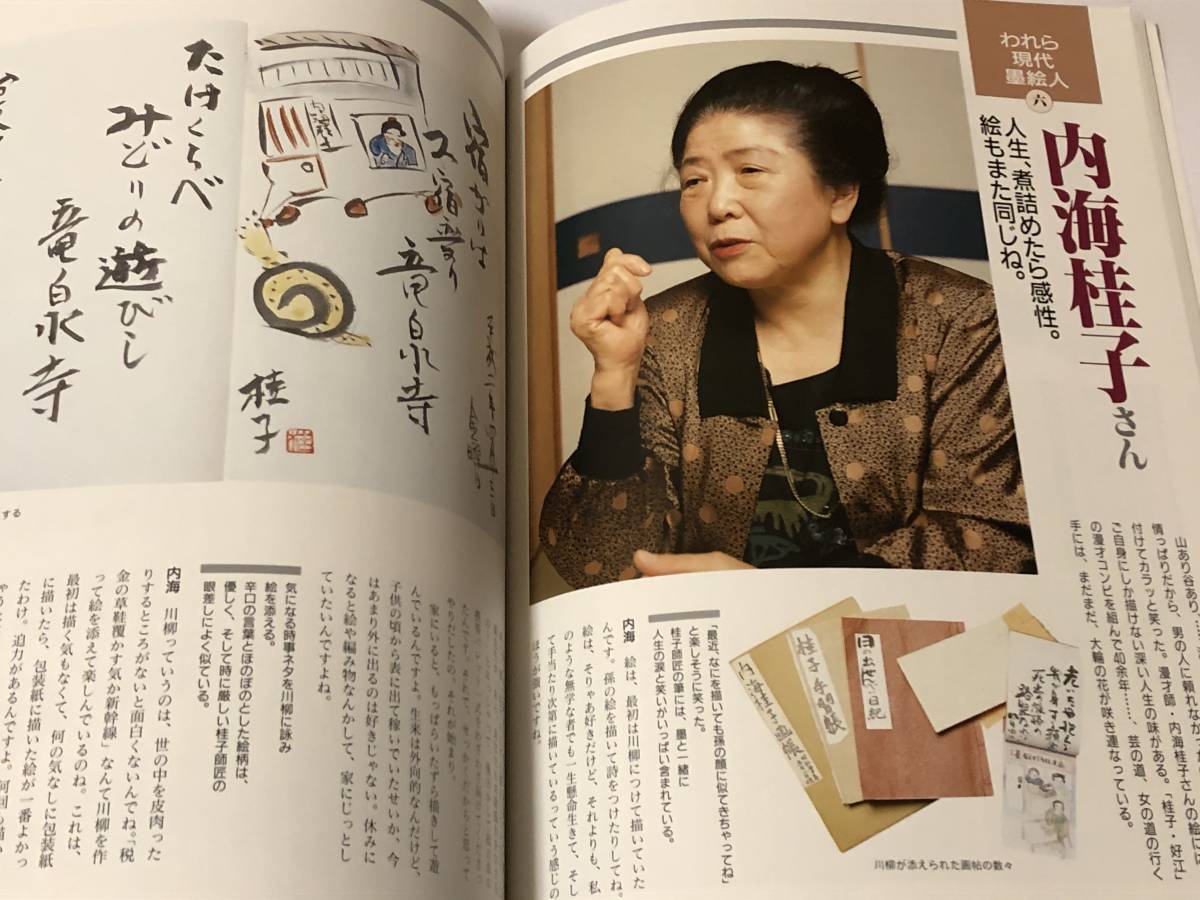 われら
現代
墨絵人
六
内海桂子さん
人生、煮詰めたら感性。
絵もまた同じね。
山あり谷あり…
情っぱりだから、男の人に頼れなかった
付けてカラッと笑った。漫才師・内海桂子さんの絵には
ご自身にしか描けない深い人生の味がある。「桂子・好江」
の漫才コンビを組んで40余年……、芸の道、女の道の行く
手には、まだまだ、大輪の花が咲き連なっている。
川柳が添えられた画帖の数々
「最近、なにを描いても孫の顔に似てきちゃってね」
と楽しそうに笑った。
桂子師匠の筆には、墨と一緒に
人生の涙と笑いがいっぱい含まれている。
内海 絵は、最初は川柳につけて描いていた
んです。孫の絵を描いて詩をつけたりしてね。
絵は、そりゃあ好きだけど、それよりも、私
のような無学な者でも一生懸命生きて、そし
て手当たり次第に描いているっていう感じの
ほうが強いですね。
やりだしたの。それが始まり。
家にいると、もっぱらいたずら描きして遊
んでいるんですよ。生来は外向的なんだけど、
子供の頃から表に出て稼いでいたせいか、今
はあまり外に出るのは好きじゃない。休みに
なると絵や編み物なんかして、家にじっとし
ていたいんですよね。
気になる時事ネタを川柳に詠み
絵を添える。
辛口の言葉とほのぼのとした絵柄は、
優しく、そして時に厳しい桂子師匠の
眼差しによく似ている。
内海 川柳っていうのは、世の中を皮肉った
りするところがないと面白くないんでね。「税
金の草鞋覆かす気か新幹線」なんて川柳を作
って絵を添えて楽しんでいるのね。これは、
最初は描く気もなくて、何の気なしに包装紙
に描いたら、包装紙に描いた絵が一番よかっ
たわけ。迫力があるんですよ。何回も描い
する
たけくらべ
みどりの遊びし
竜泉寺
竜泉寺
桂子
日の出の日記
桂子手習帳
内海桂子画帳